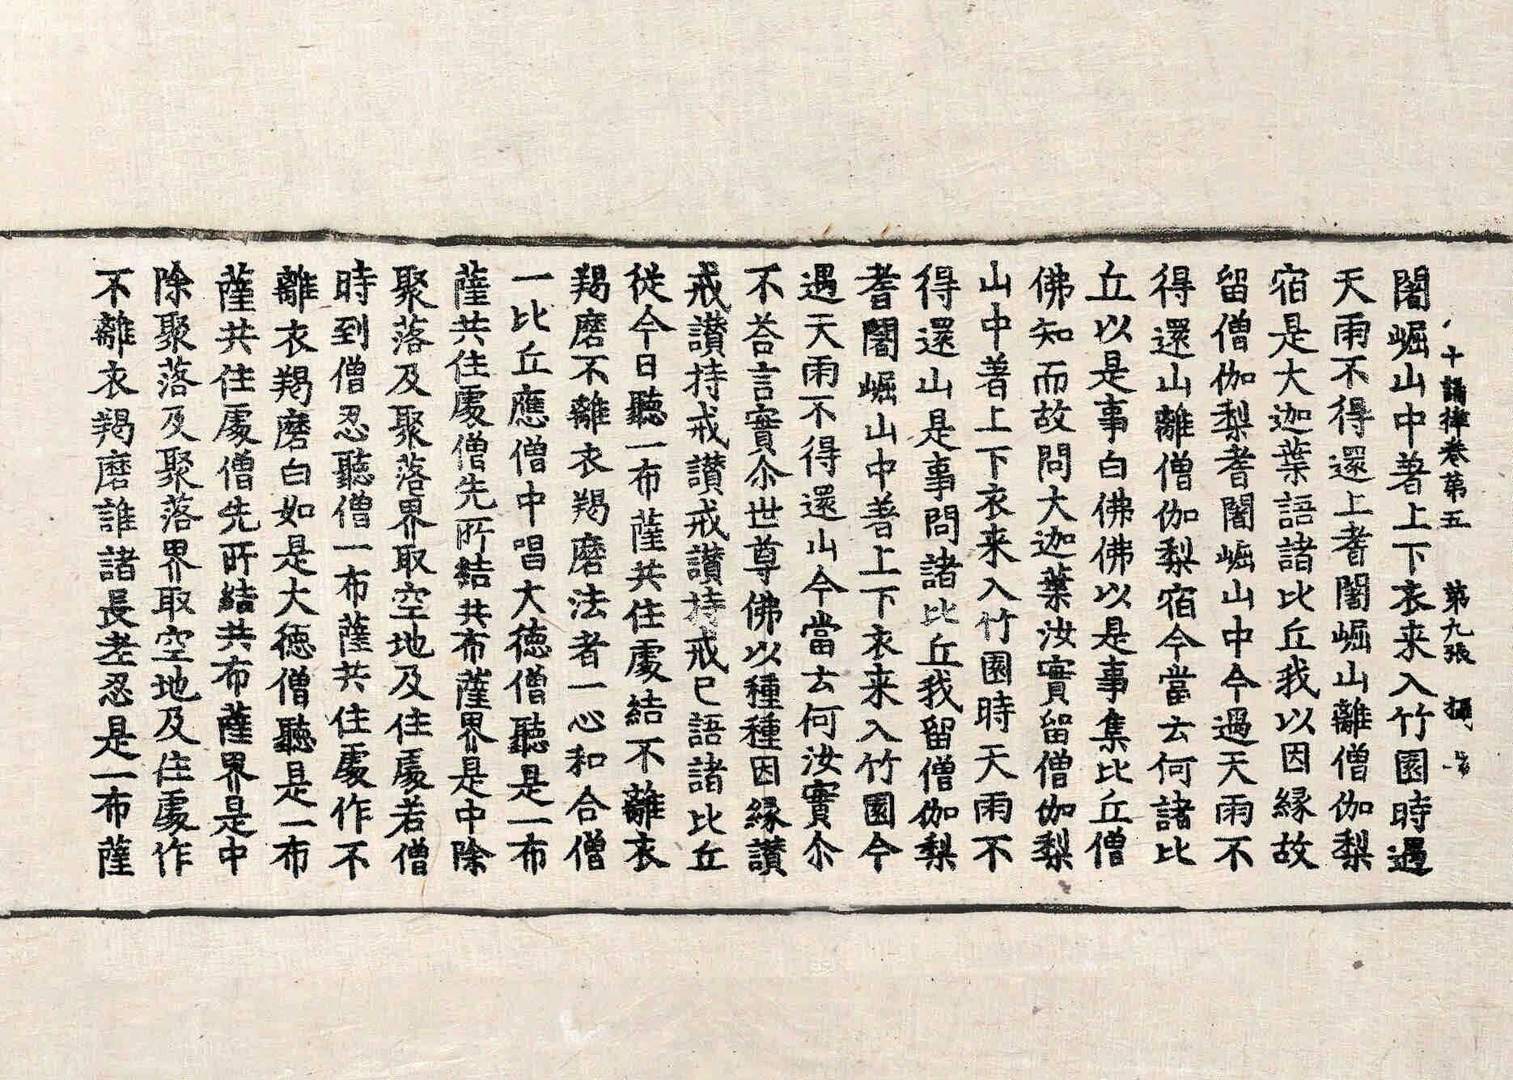 十誦律卷第五 第九張
闍崛山中著上下衣来入竹園時遇
天雨不得還上耆闍崛山離僧伽梨
宿是大迦葉語諸比丘我以因緣故
留僧伽梨耆闍崛山中今遇天雨不
得還山離僧伽梨宿今當去何諸比
丘以是事白佛佛以是事集比丘僧
佛知而故問大迦葉汝實留僧伽梨
山中著上下衣来入竹園時天雨不
得還山是事問諸比丘我留僧伽梨
耆闍崛山中著上下衣来入竹園今
遇天雨不得還山今當去何汝實尒
不荅言實尒世尊佛以種種因緣讃
戒讃持戒讃戒讃持戒已語諸比丘
從今日聽一布薩共住處結不離衣
羯磨不離衣羯磨法者一心和合僧
一比丘應僧中唱大德僧聽是一布
薩共住處僧先所結共布薩界是中除
聚落及聚落界取空地及住處若僧
時到僧忍聽僧一布薩共住處作不
離衣羯磨白如是大德僧聽是一布
薩共住處僧先所結共布薩界是中
除聚落及聚落界取空地及住處作
不離衣羯磨誰諸長老忍是一布薩